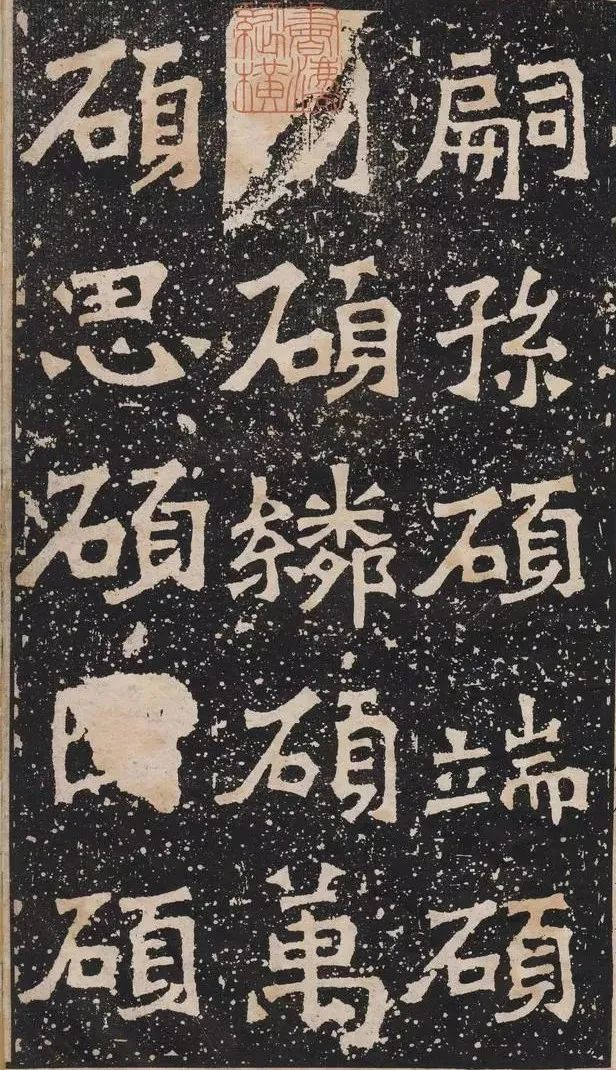 嗣孫碩端碩
碩繗碩萬
碩思碩碩